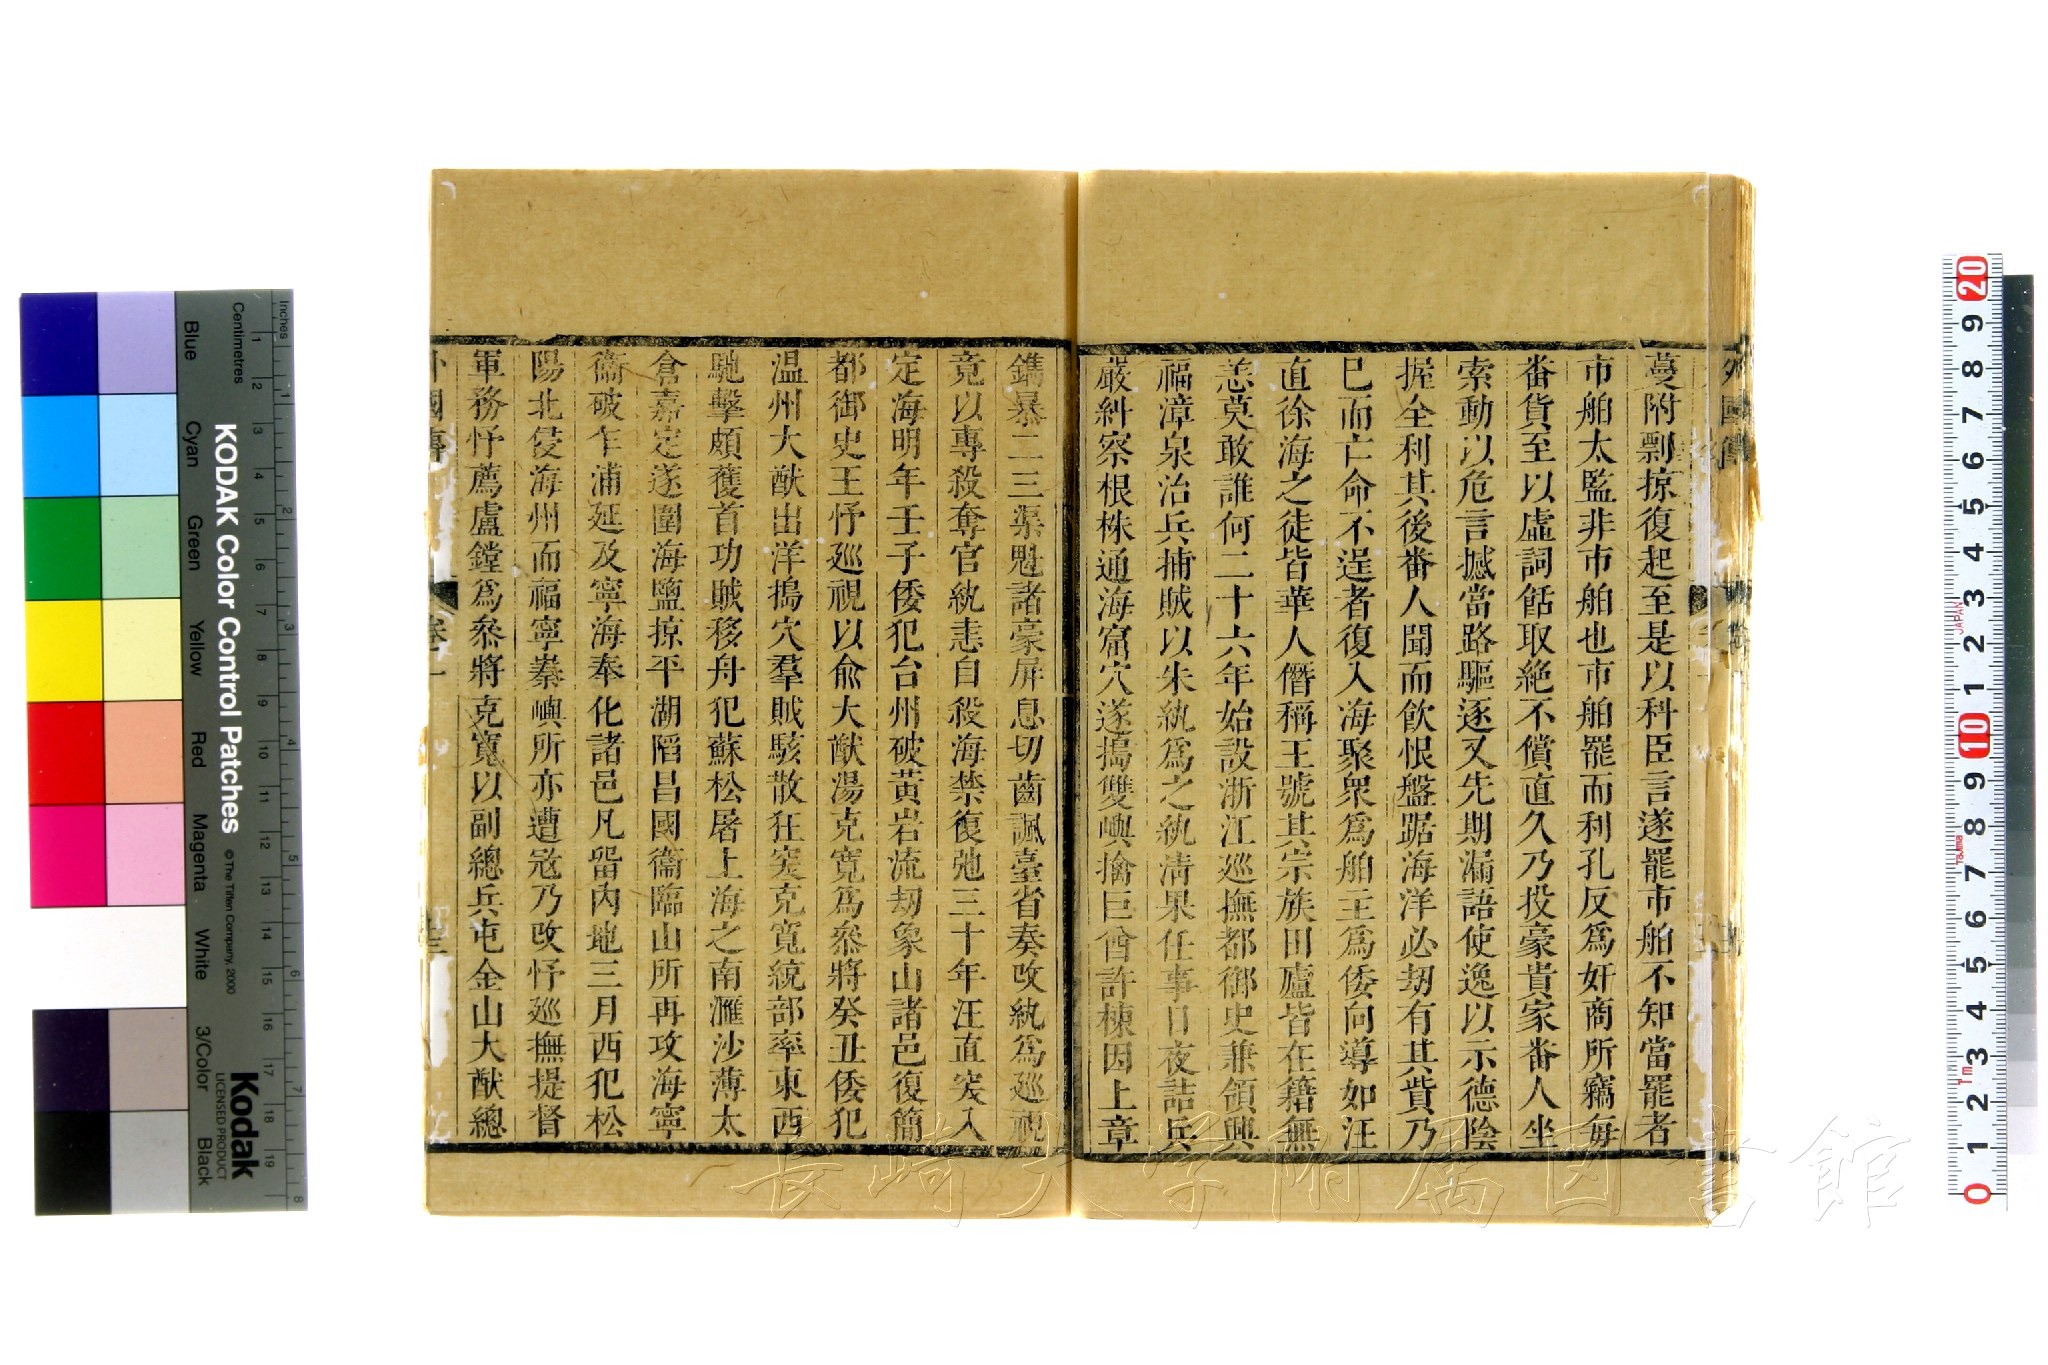 外國傳
蔓附剽掠復起至是以科臣言遂罷市舶不知當罷者
市舶太監非市舶也市舶罷而利孔反爲奸商所竊每
番貨至以虛詞餂取絶不償直久乃投豪貴家番人坐
索動以危言撼當路驅逐又先期漏語使逸以示德陰
握全利其後番人聞而飲恨盤踞海洋必刼有其貲乃
巳而亡命不逞者復入海聚衆爲舶主爲倭向導如汪
直徐海之徒皆華人僭稱王號其宗族田廬皆在籍無
恙莫敢誰何二十六年始設浙江巡撫都御史兼領興
福漳泉治兵捕賊以朱紈爲之紈淸果任事日夜詰兵
嚴糾察根株通海窟穴遂搗雙嶼擒巨酋許棟因上章
鐫暴二三渠魁諸豪屏息切齒諷臺省奏改紈爲巡視
竟以專殺奪官紈恚自殺海禁復弛三十年汪直突入
定海明年壬子倭犯台州破黃岩流刼象山諸邑復簡
都御史王忬巡視以兪大猷湯克寬爲叅將癸丑倭犯
温州大猷出洋搗穴羣賊駭散狂突克寬統部率東西
馳擊頗獲首功賊移舟犯蘇松屠上海之南滙沙薄太
倉嘉定遂圍海鹽掠平湖陷昌國衞臨山所再攻海寧
衞破乍浦延及寧海奉化諸邑凡畱內地三月西犯松
陽北侵海州而福寧秦嶼所亦遭寇乃改忬巡撫提督
軍務忬薦盧鏜爲叅將克寬以副總兵屯金山大猷總
外國傳
卷一
長崎大学附属図書館
KODAK Color Control Patches
© The Tiffen Company, 2000
Kodak
LICENSED PRODUCT
Inches
Centimetres
Blue
Cyan
Green
Yellow
Red
Magenta
White
3/Color
Black
JAPAN
1m